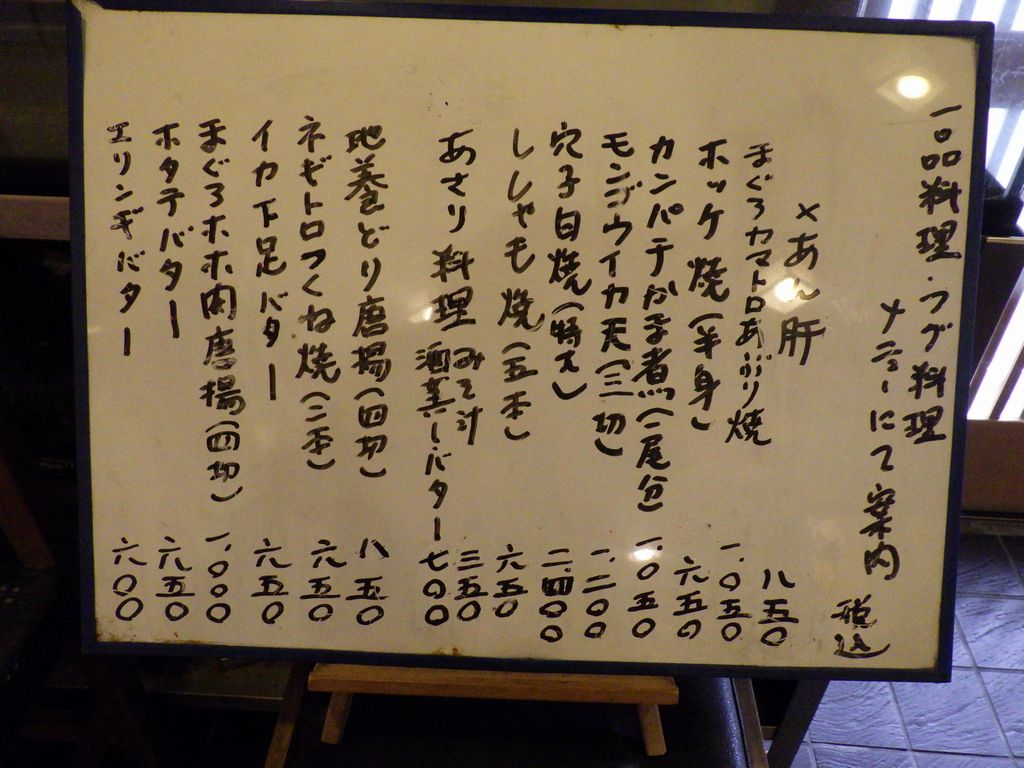 一品料理・フグ料理
メニューにて案内
税込
×あん肝
まぐろカマトロあぶり焼 八五〇
ホッケ焼(半身) 一、〇五〇
カンパチかま煮(一尾分) 六五〇
モンゴウイカ天(三切) 一、〇五〇
穴子白焼(特大) 一、二〇〇
ししゃも焼(五本) 二、四〇〇
六五〇
あさり料理 みそ汁 三五〇
酒蒸し・バター 七〇〇
地養どり唐揚(四切) 八五〇
ネギトロつくね焼(二本) 六五〇
イカ下足バター 六五〇
まぐろホホ肉唐揚(四切) 一、〇〇〇
ホタテバター 六五〇
エリンギバター 六〇〇